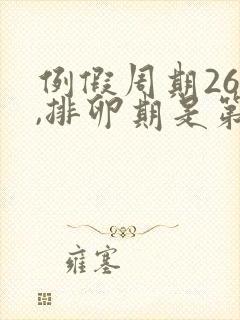 例假周期26
,排卵期是第
雍塞